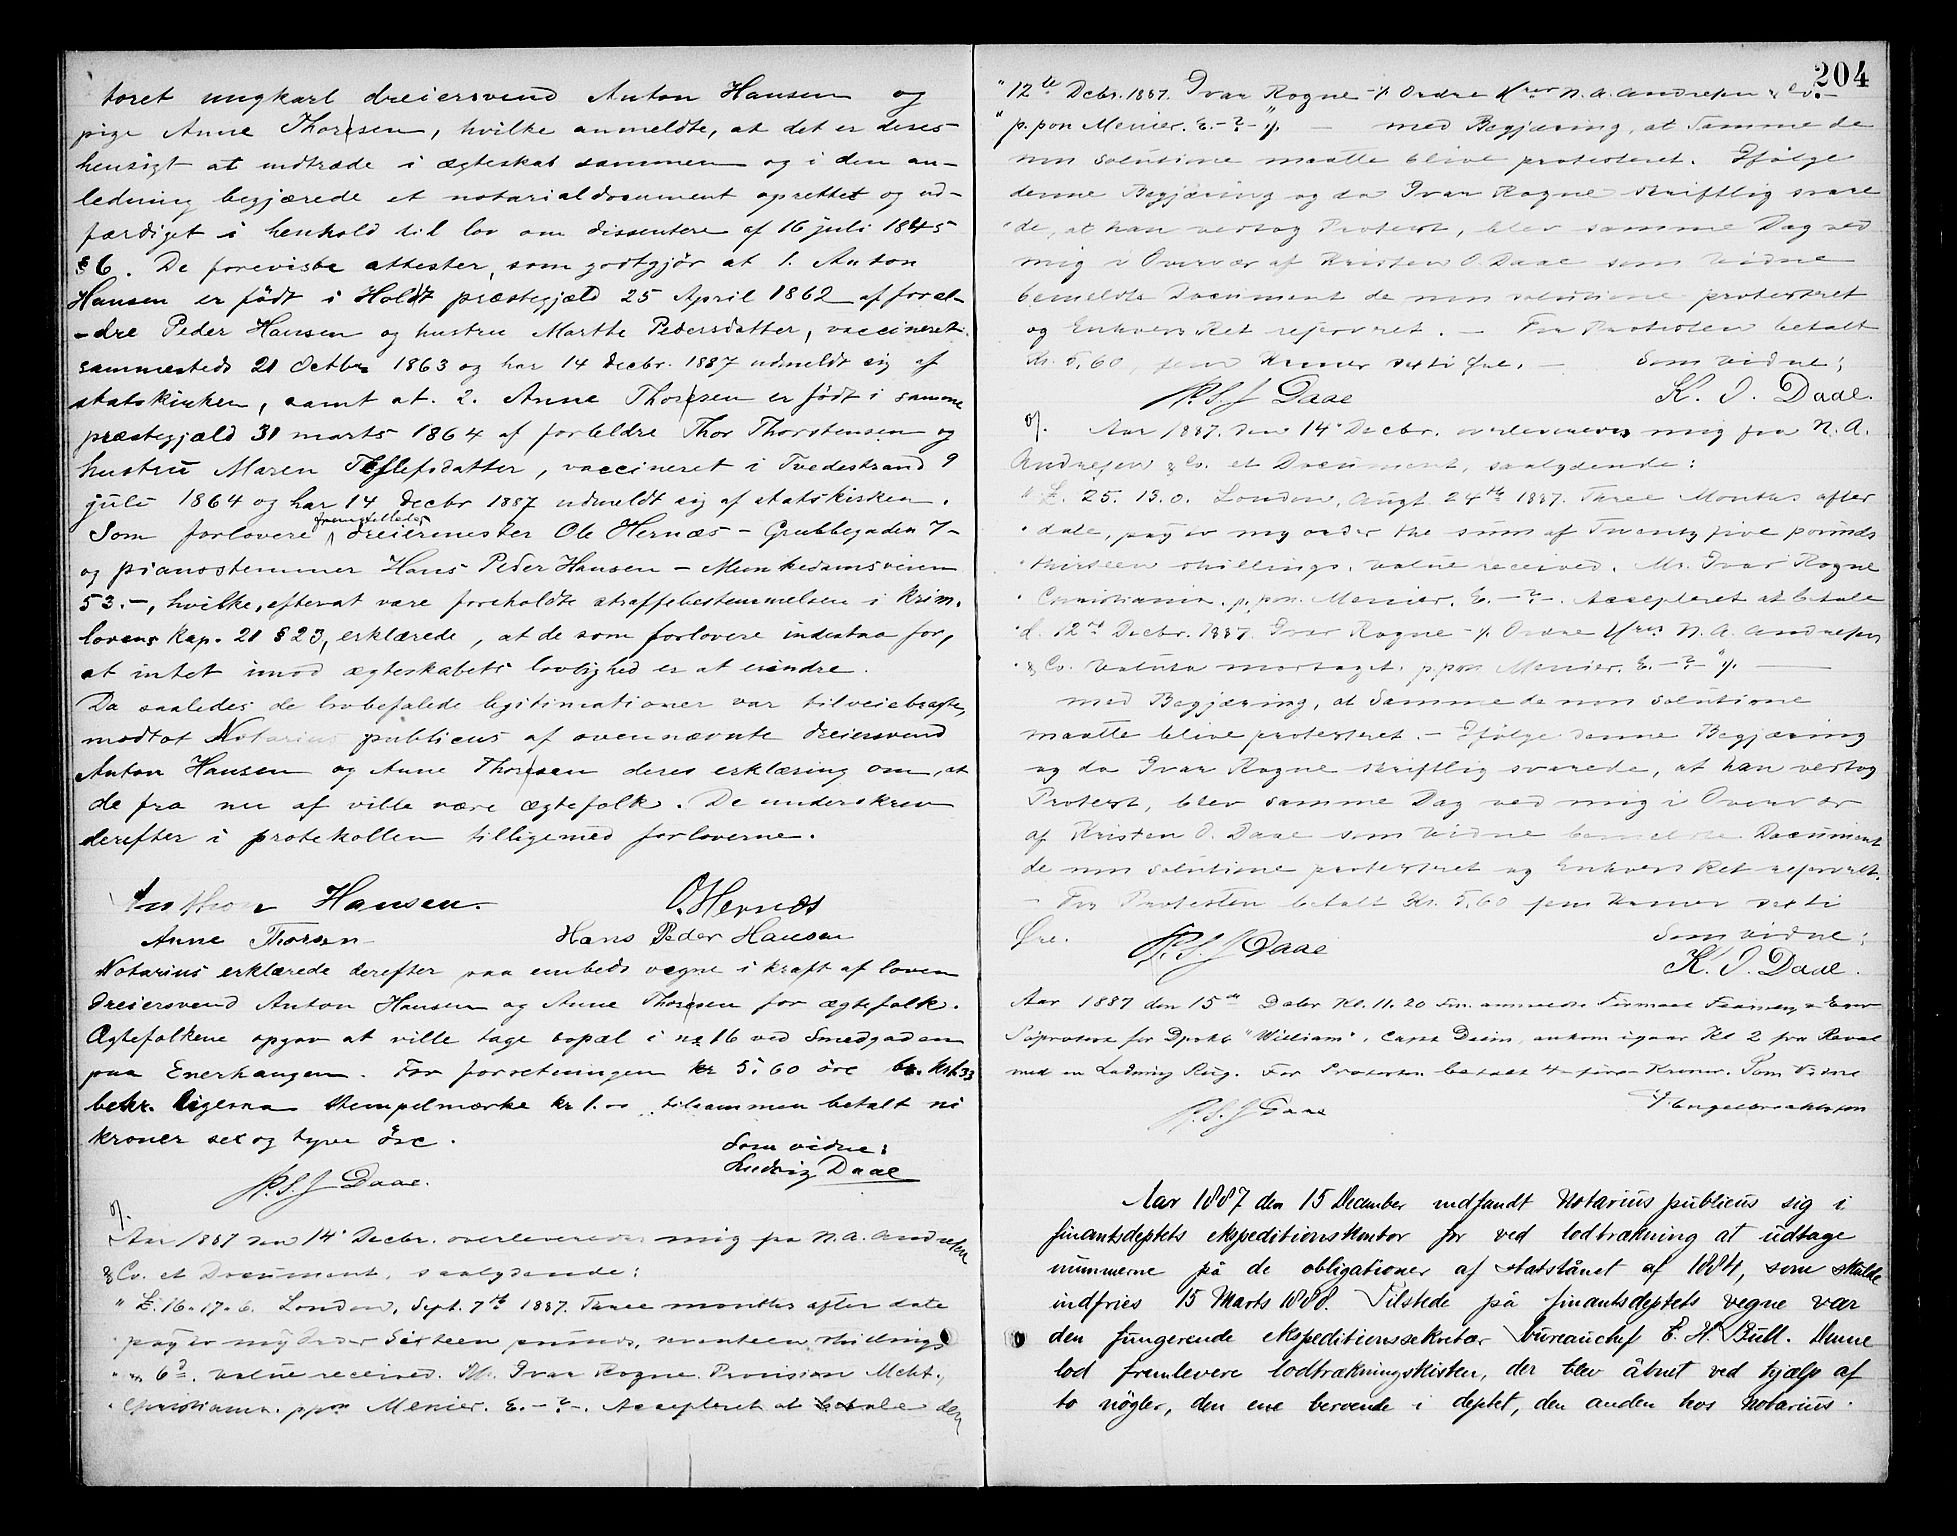 toret ungkarl dreiersvend Anton Hansen og
pige Anne Thoresen, hvilke anmeldte, at det er deres
hensigt at indtræde i ægteskab sammen og i den an-
ledning begjærede et notarialdocument oprettet og ud-
færdiget i henhold til lov om dissentere af 16 juli 1845
§ 6. De foreviste attester, som godtgjør at 1. Anton
Hansen er født i Holdt præstegjæld 25 April 1862 af foræl-
-dre Peder Hansen og hustru Marthe Pedersdatter, vaccineret
sammesteds 21 Octbr 1863 og har 14 decbr. 1887 udmeldt sig af
statskirken, samt at 2. Anne Thoresen er født i samme
præstegjæld 31 marts 1864 af forældre Thor Thorstensen og
hustru Maren Tellefsdatter, vaccineret i Tvedestrand 9
juli 1864 og har 14 decbr 1887 udmeldt sig af statskirken.
Som forlovere fremstilledes dreiermester Ole Hernæs - Grubbegaden 7-
og pianostemmer Hans Peder Hansen - Munkedamsveien
53.-, hvilke, efterat være foreholdte straffebestemmelsen i Krim.
lovens kap. 21 § 23, erklærede, at de som forlovere indestaa for,
at intet imod ægteskabets lovlighed er at erindre.
Da saaledes de lovbefalede legitimationer var tilveiebragte,
modtot Notarius publicus af ovennævnte dreiersvend
Anton Hansen og Anne Thoresen deres erklæring om, at
de fra nu af ville være ægtefolk. De underskrev
derefter i protokollen tilligemed forloverne.
Anthon Hansen. O. Hernæs
Anne Thorsen Hans Peder Hansen
Notarius erklærede derefter paa embeds vegne i kraft af loven
dreiersvend Anton Hansen og Anne Thoresen for ægtefolk.
Ægtefolkene opgav at ville tage bopæl i no 16 ved Smedgaden
paa Enerhaugen. For forretningen kr 5,60 öre
bekr. ligesaa stempelmærke kr 1.- tilsammen betalt ni
kroner sex og tyve öre.
Som vidne:
P.S.J Daae. Ludvig Daae
Aar 1887 den 14' Decbr. overleveredes mig fra N.A. Andresen
& Co. et Document, saalydende:
" £. 16-17-6. London, Sept. 7th 1887. Three months after date
pay to my order Sixteen pounds, seventeen shillings
" 6d. value received. Mr. Ivar Rogne. Provision Mcht.,
Christiania. ppon Menier. E. -?-. Accepteret at betale den
204
"12te Decbr. 1887. Ivar Rogne -/. Ordre Hrer N.A. Andresen & Co.-
"p. pon Menier. E. -?-"/. - med Begjæring, at Samme de
non solutione maatte blive protesteret. Ifølge
denne Begjæring og da Ivar Rogne skriftlig svare
de, at han vedtog Protest, blev samme Dag ved
mig i Overvær af Kristen O. Daae som Vidne
bemeldte Document de non solutione protesteret
og Enhvers Ret reserveret. - For Protesten betalt
Kr. 5,60, fem Kroner sexti Øre. - Som Vidne:
P.S.J Daae K. O. Daae.
Aar 1887. den 14' Decbr. overleveredes mig fra N.A.
Andresen & Co. et Document, saalydende:
" £. 25. 13. 0. London, Augt. 24th 1887. Three Months after
date, pay to my order the sum of Twenty five pounds
thirteen shillings. value received. Mr. Ivar Rogne
Christiania. p. pon. Menier. E. -?-. Accepteret at betale
d. 12te Decbr. 1887. Ivar Rogne -/. Ordre Hrer N.A. Andresen
& Co. Valuta modtaget. p. pon Menier. E. -?-"/.
med Begjæring, at Samme de non solutione
maatte blive protesteret. - Ifølge denne Begjæring
og da Ivar Rogne skriftlig svarede, at han vedtog
Protest, blev samme Dag ved mig i Overvær
af Kristen O. Daae som Vidne bemeldte Document
de non solutione protesteret og Enhvers Ret reserveret.
- For Protesten betalt Kr. 5,60 fem Kroner sexti
Øre. P.S.J Daae Som Vidne:
K. O. Daae.
Aar 1887 den 15de Decbr Kl. 11.20 Fm. anmeldte Firmaet
Söprotest for Dpskb "William", Capt. ankom igaar Kl 2 fra
med en Ladning Rug. For Protesten betalt 4 fire Kroner. Som Vidne
P.S.J Daae Engelbrechtsen
Aar 1887 den 15 December indfandt Notarius publicus sig i
finantsdeptets ekspeditionskontor for ved lodtrækning at udtage
numrene på de obligationer af statslånet af 1884, som skulde
indfries 15 Marts 1888. Tilstede på finantsdeptets vegne var
den fungerende ekspeditionssekretær bureauchef E. H. Bull. Denne
lod fremlevere lodtrækningskisten, der blev åbnet ved hjælp af
to nøgler, den ene beroende i deptet, den anden hos Notarius.